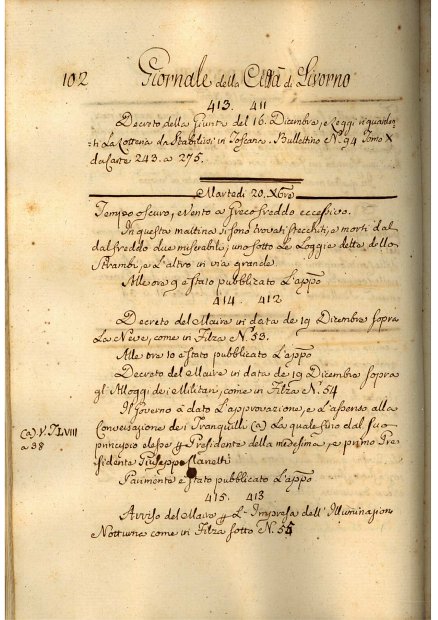 102 Giornale della Città di Livorno
413. 411
Decreto della Giunta del 16. Dicembre, e Leggi riguarden-
ti La Lotteria da Stabilirsi in Toscana. Bullettino N.º 94 Tomo X
da Carte 243. a 275.
Martedi 20. Xbre
Tempo oscuro, e Vento a Greco freddo eccessivo.
In questa mattina si sono trovati stecchiti, e morti dal
dal freddo due miserabili; uno sotto Le Loggie dette dello
Strambi, e L'altro in via grande.
Alle ore 9 è stato pubblicato L'appo
414. 412
Decreto del Maire in data de 19 Dicembre sopra
La Neve, come in Filza Nº. 53.
Alle ore 10 è stato pubblicato L'appo
Decreto del Maire in data de 19 Dicembre sopra
gl'Alloggi dei Militari, come in Filza Nº. 54
Il Governo à dato L'approvazione, e L'assenso alla
Conversazione dei Tranquilli (a) La quale fino dal suo
(a) V. T. LVIII
a 38
principio elesse Presidente della medesima, e primo Pre-
sidente Giuseppe Manetti
Parimente è stato pubblicato L'appo
415. 413
Avviso del Maire L'Impresa dell'Illuminazione
Notturna come in Filza sotto N. 55